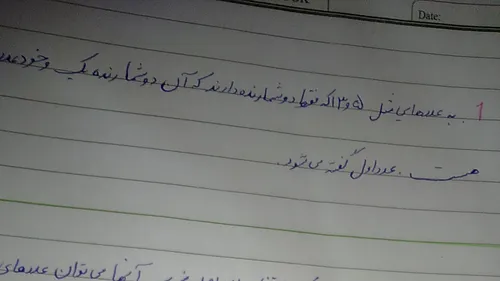 Date:
1. به عددهایی مثل (۵ و ۳) که فقط دو شمارنده دارند که آن دو شمارنده یک و خود عدد
هست. عدد اول گفته می شود.
آنها می توان عددهای